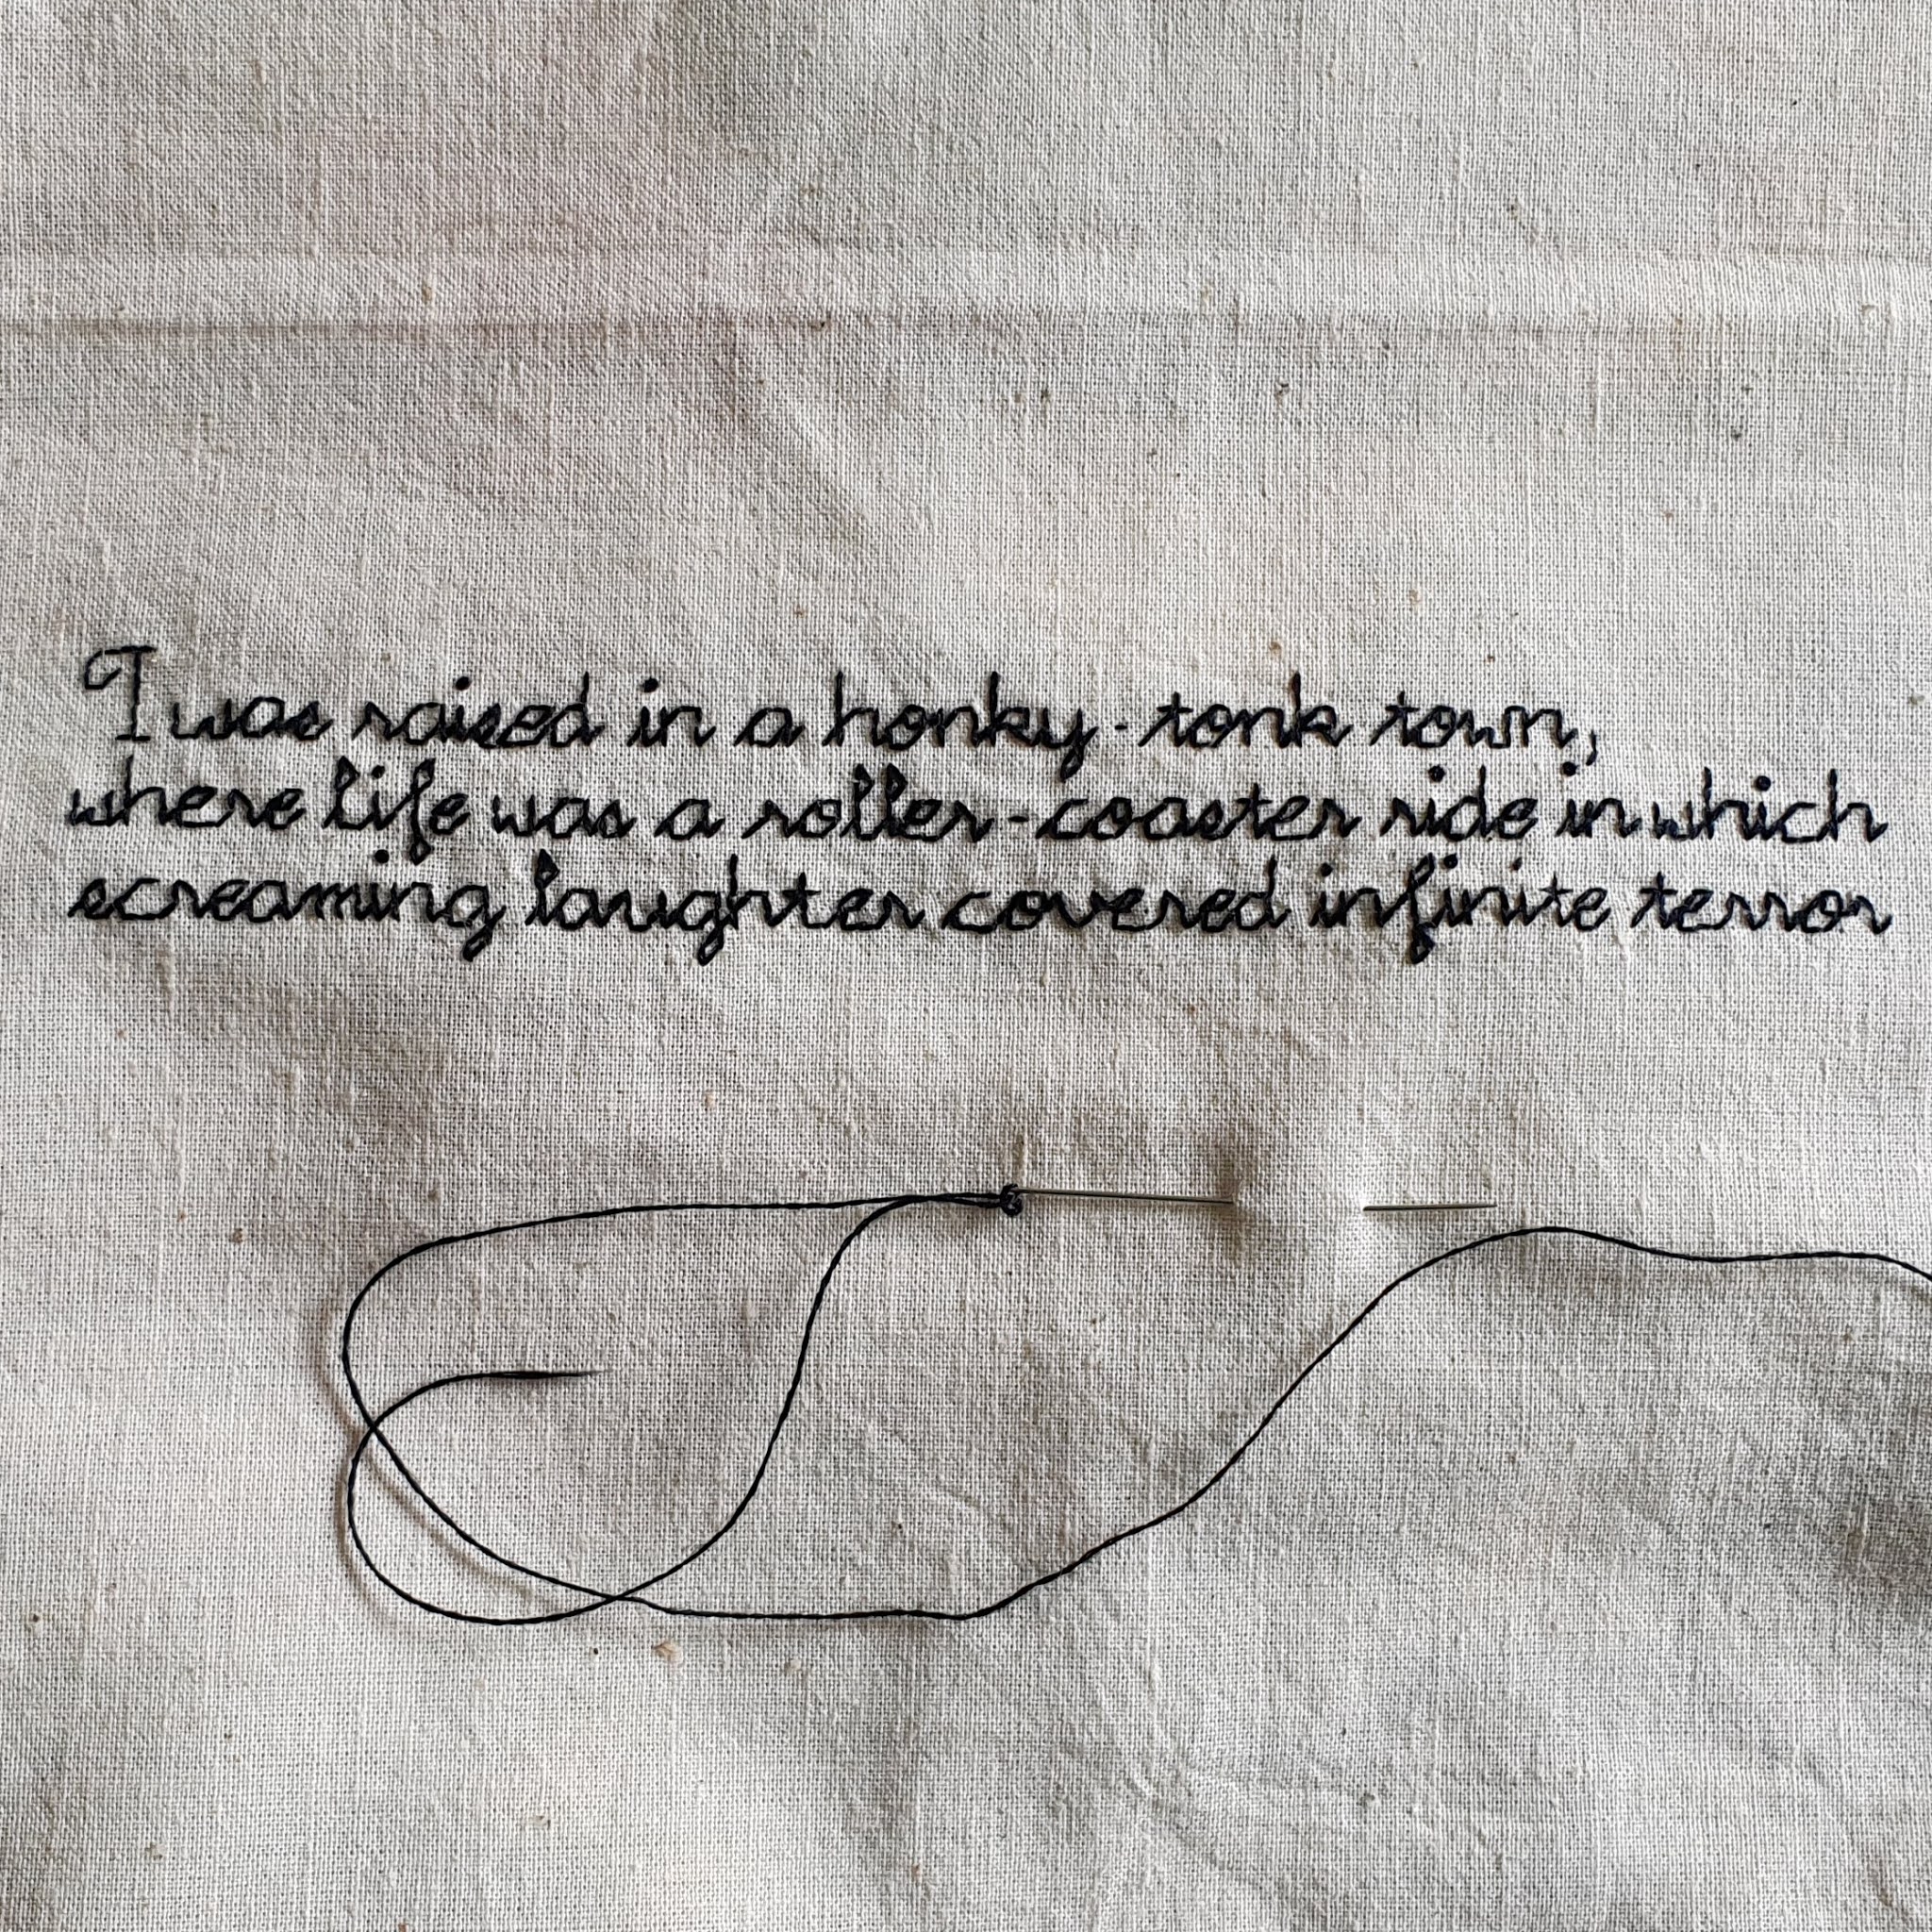 I was raised in a honky-tonk town,
where life was a roller-coaster ride in which
screaming laughter covered infinite terror